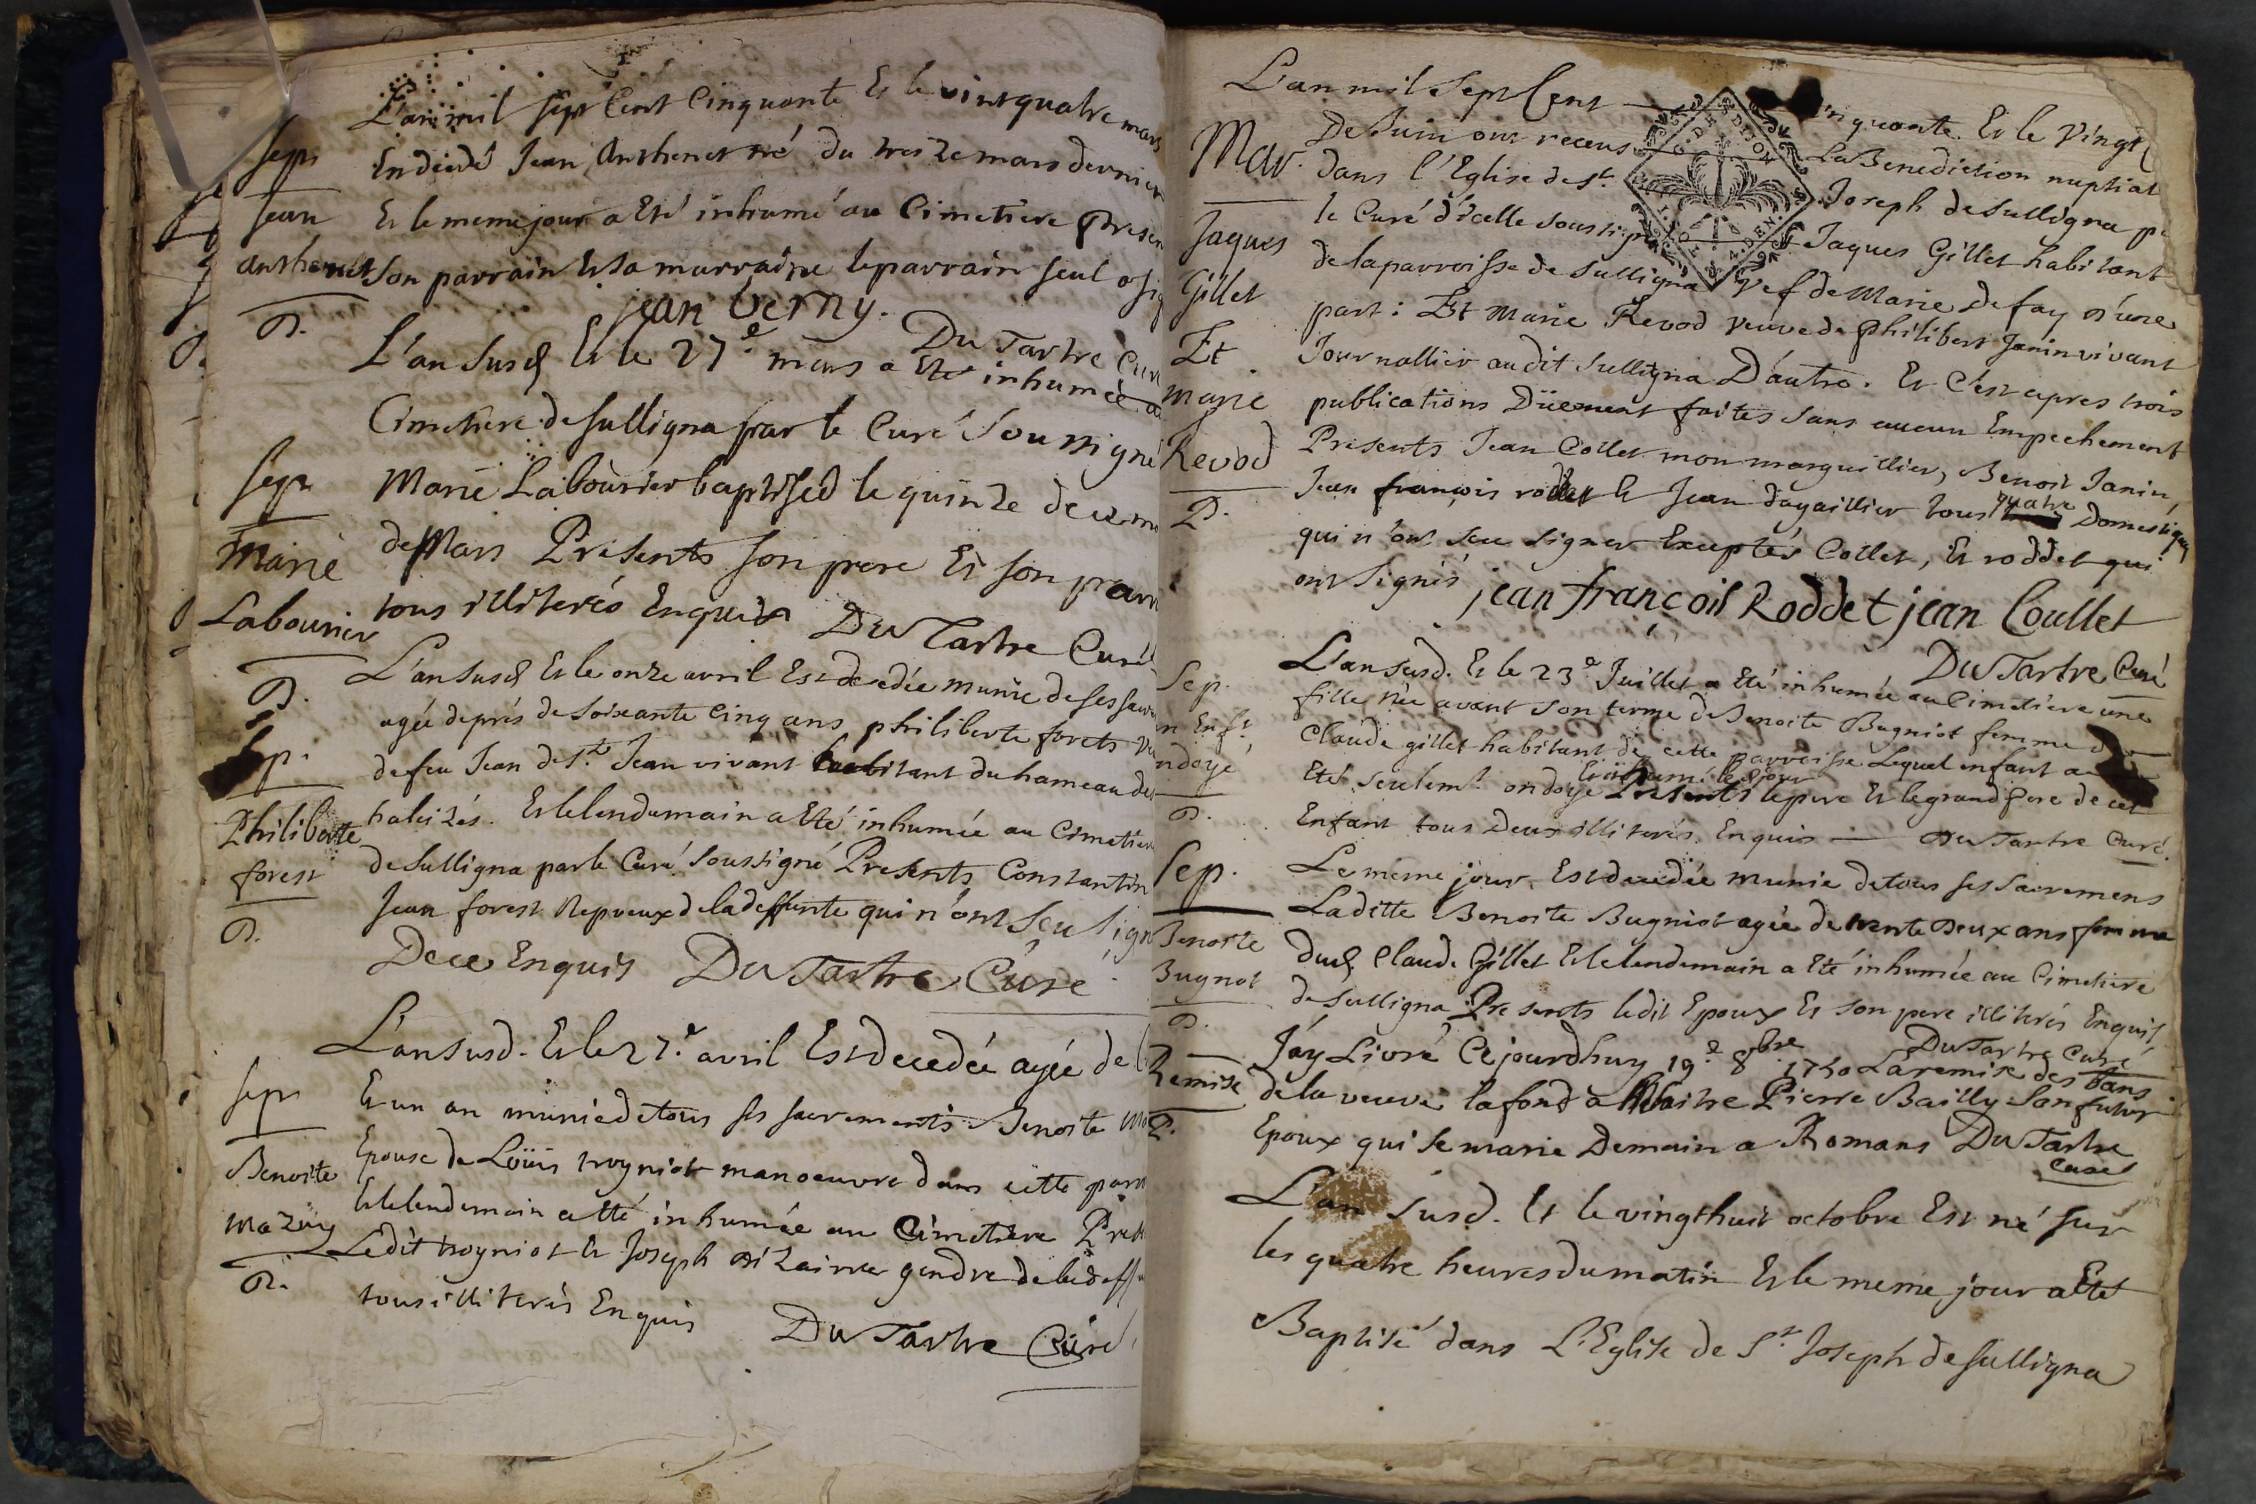 L'an mil sept Cent Cinquante Et le vint quatre mars
sepr Jean anthenet
Est decedé Jean Anthenet né du treize mars dernier
Et le meme jour a Eté inhumé au Cimetiere Presen
son parrain Et sa marraine le parrain seul a sig
jean verny.
Du Tartre Curé
P.
L'an susd Et le 27e. mars a Eté inhumée a
Cimetiere de sulligna par le Curé soussigné
sepr Marie Labourier
Marie Labourier baptised le quinze de ce m
de Mars Presents son pere Et son parr
tous illiterés Enquis Du Tartre Curé
P.
L'an susd Et le onze avril Est decedée munie de ses sacre
agée de prés de soixante Cinq ans philiberte forets v
sep. Philiberte forest
de feu Jean de St. Jean vivant habitant du hameau des
Et le lendemain a Eté inhumée au Cimetiere
de Sulligna par le Curé soussigné Presents Constantin
Jean forest Nepveux de la deffunte qui n'ont sçeu sign
P.
De ce Enquis Du Tartre Curé
L'an susd. Et le 27.e avril Est decedée agée de
sepr Benoite Mazuy
Et un an munie de tous ses sacrements Benoite Ma
Epouse de Loüis troyniot manoeuvre dans cette paro
Et le lendemain a Eté inhumée au Cimetiere Pres
Ledit troyniot Et Joseph gendre de lad deff
P.
tous illiterés Enquis Du Tartre Curé
L'an mil Sept Cent Cinquante. Et le Vingt
G. DE DIJON
Mar. Jaques Gillet Et marie Revod
De Juin ont receus La Benediction nuptial
dans l'Eglise de St. Joseph de Sulligna p
le Curé d'icelle soussigné Jaques Gillet habitant
de la parroisse de Sulligna Vef de Marie Defay d'une
part: Et Marie Revod veuve de Philibert Janin vivant
Journallier audit Sulligna D'autre. Et c'est apres trois
publications Düement faites sans aucun Empechement
Presents Jean Collet mon marguillier, Benoit Janin,
Jean françois rodet & Jean dagaillier tous quatre Domestiques
P.
qui n'ont sceu signer Exceptés Collet, Et roddet qui
ont signés jean françois Roddet jean Coullet
Du Tartre Curé
Sep. n Enft. ndoyé
L'an susd. Et le 23e Juillet a Eté inhumée au Cimetiere une
fille née avant son terme de Benoite Bugniot femme d
Claude gillet habitant de cette parroisse Lequel enfant a
Eté seulemt. ondoyé Presents le pere Et le grand pere de cet
P.
Enfant tous Deux illiterés Enquis — Du Tartre Curé.
Sep. Benoite Bugnot
Le méme jour. Est decedée munie de tous ses Sacremens
Laditte Benoite Bugniot agée de trente Deux ans femme
Dud Claude Gillet Et le lendemain a Eté inhumée au Cimetiere
de Sulligna Presents ledit Epoux Et son pere illiterés Enquis
P.
Du Tartre Curé
Remise
J'áy Livré Cejourdhuy 19.e 8bre 1750 La remise des bans
de la veuve lafond à Maitre Pierre Bailly Son futur
P.
Epoux qui se marie Demain a Romans Du Tartre
Curé
L'an susd. Et le vingt huit octobre Est né sur
les quatre heures du matin Et le meme jour a Eté
Baptisé dans L'Eglise de St. Joseph de sulligna